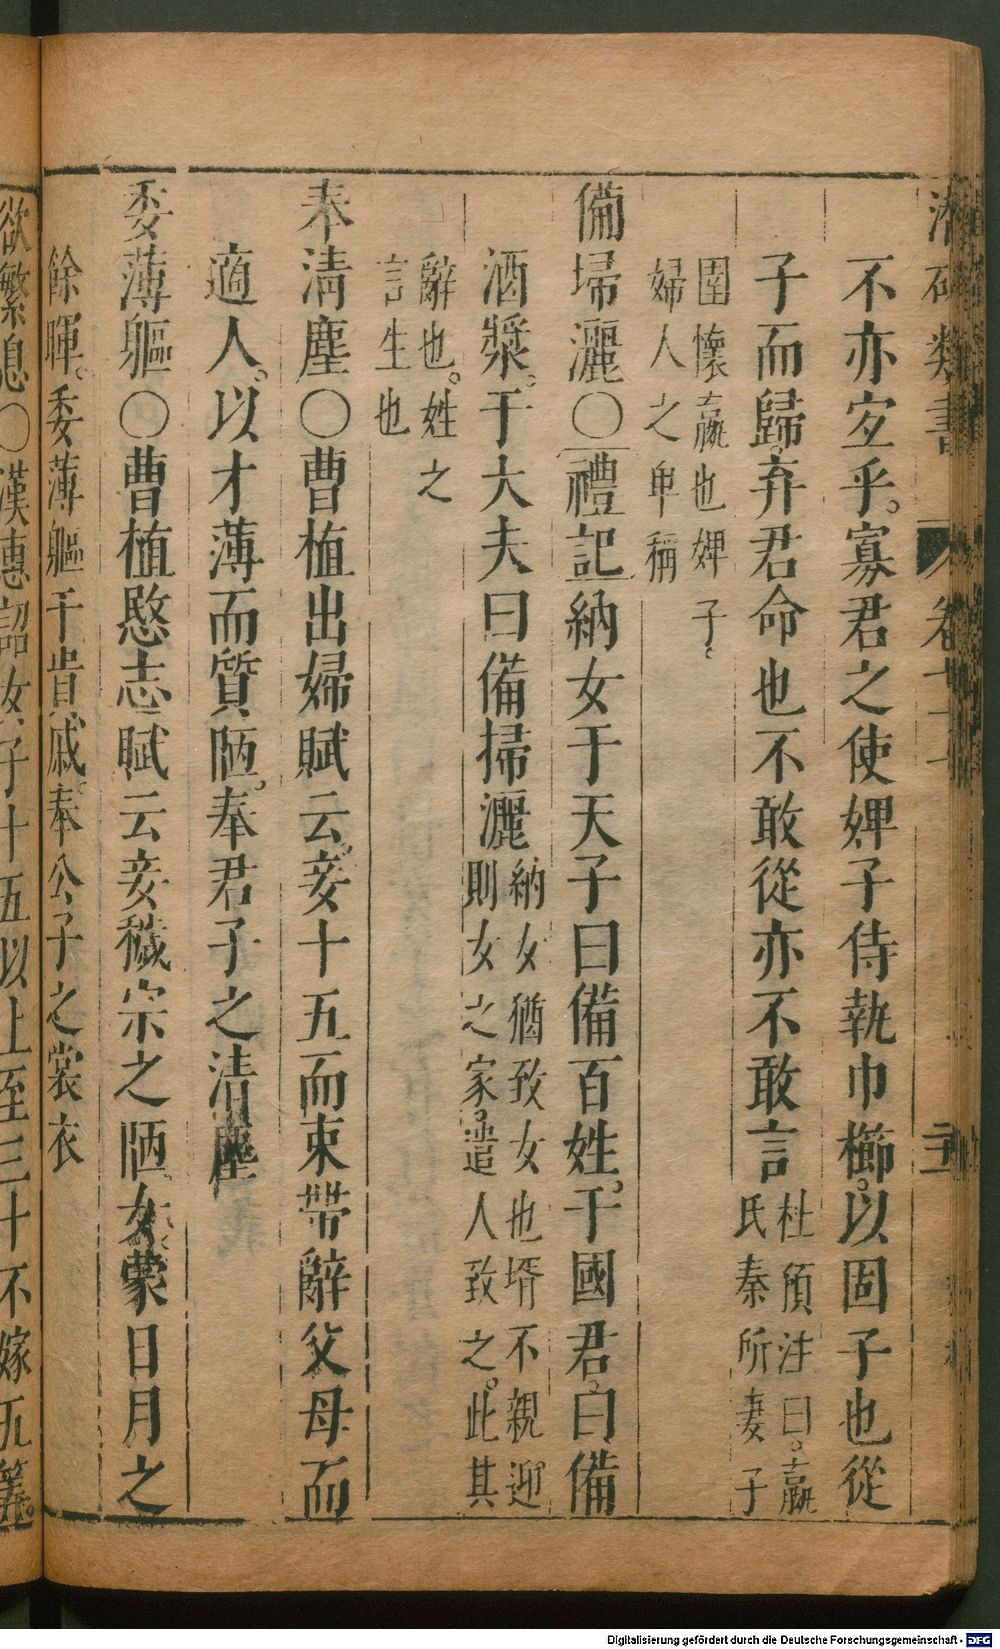 類書 卷
不亦宐乎寡君之使婢子侍執巾櫛以固子也從
子而歸弃君命也不敢從亦不敢言杜預注曰嬴
氏秦所妻子
圉懷嬴也婢子
婦人之𤰞稱
備埽灑○禮記納女于天子曰備百姓于國君曰備
酒漿于大夫曰備掃灑納女猶致女也壻不親迎
則女之家遣人致之此其
辭也姓之
言生也
奉清塵○曹植出婦賦云妾十五而束帶辭父母而
適人以才薄而質陋奉君子之清塵
委薄軀○曹植愍志賦云妾穢宗之陋女蒙日月之
餘暉委薄軀于貴戚奉公子之裳衣
欲繁息○漢惠詔女子十五以上至三十不嫁五筭
Digitalisierung gefördert durch die Deutsche Forschungsgemeinschaft - DFG